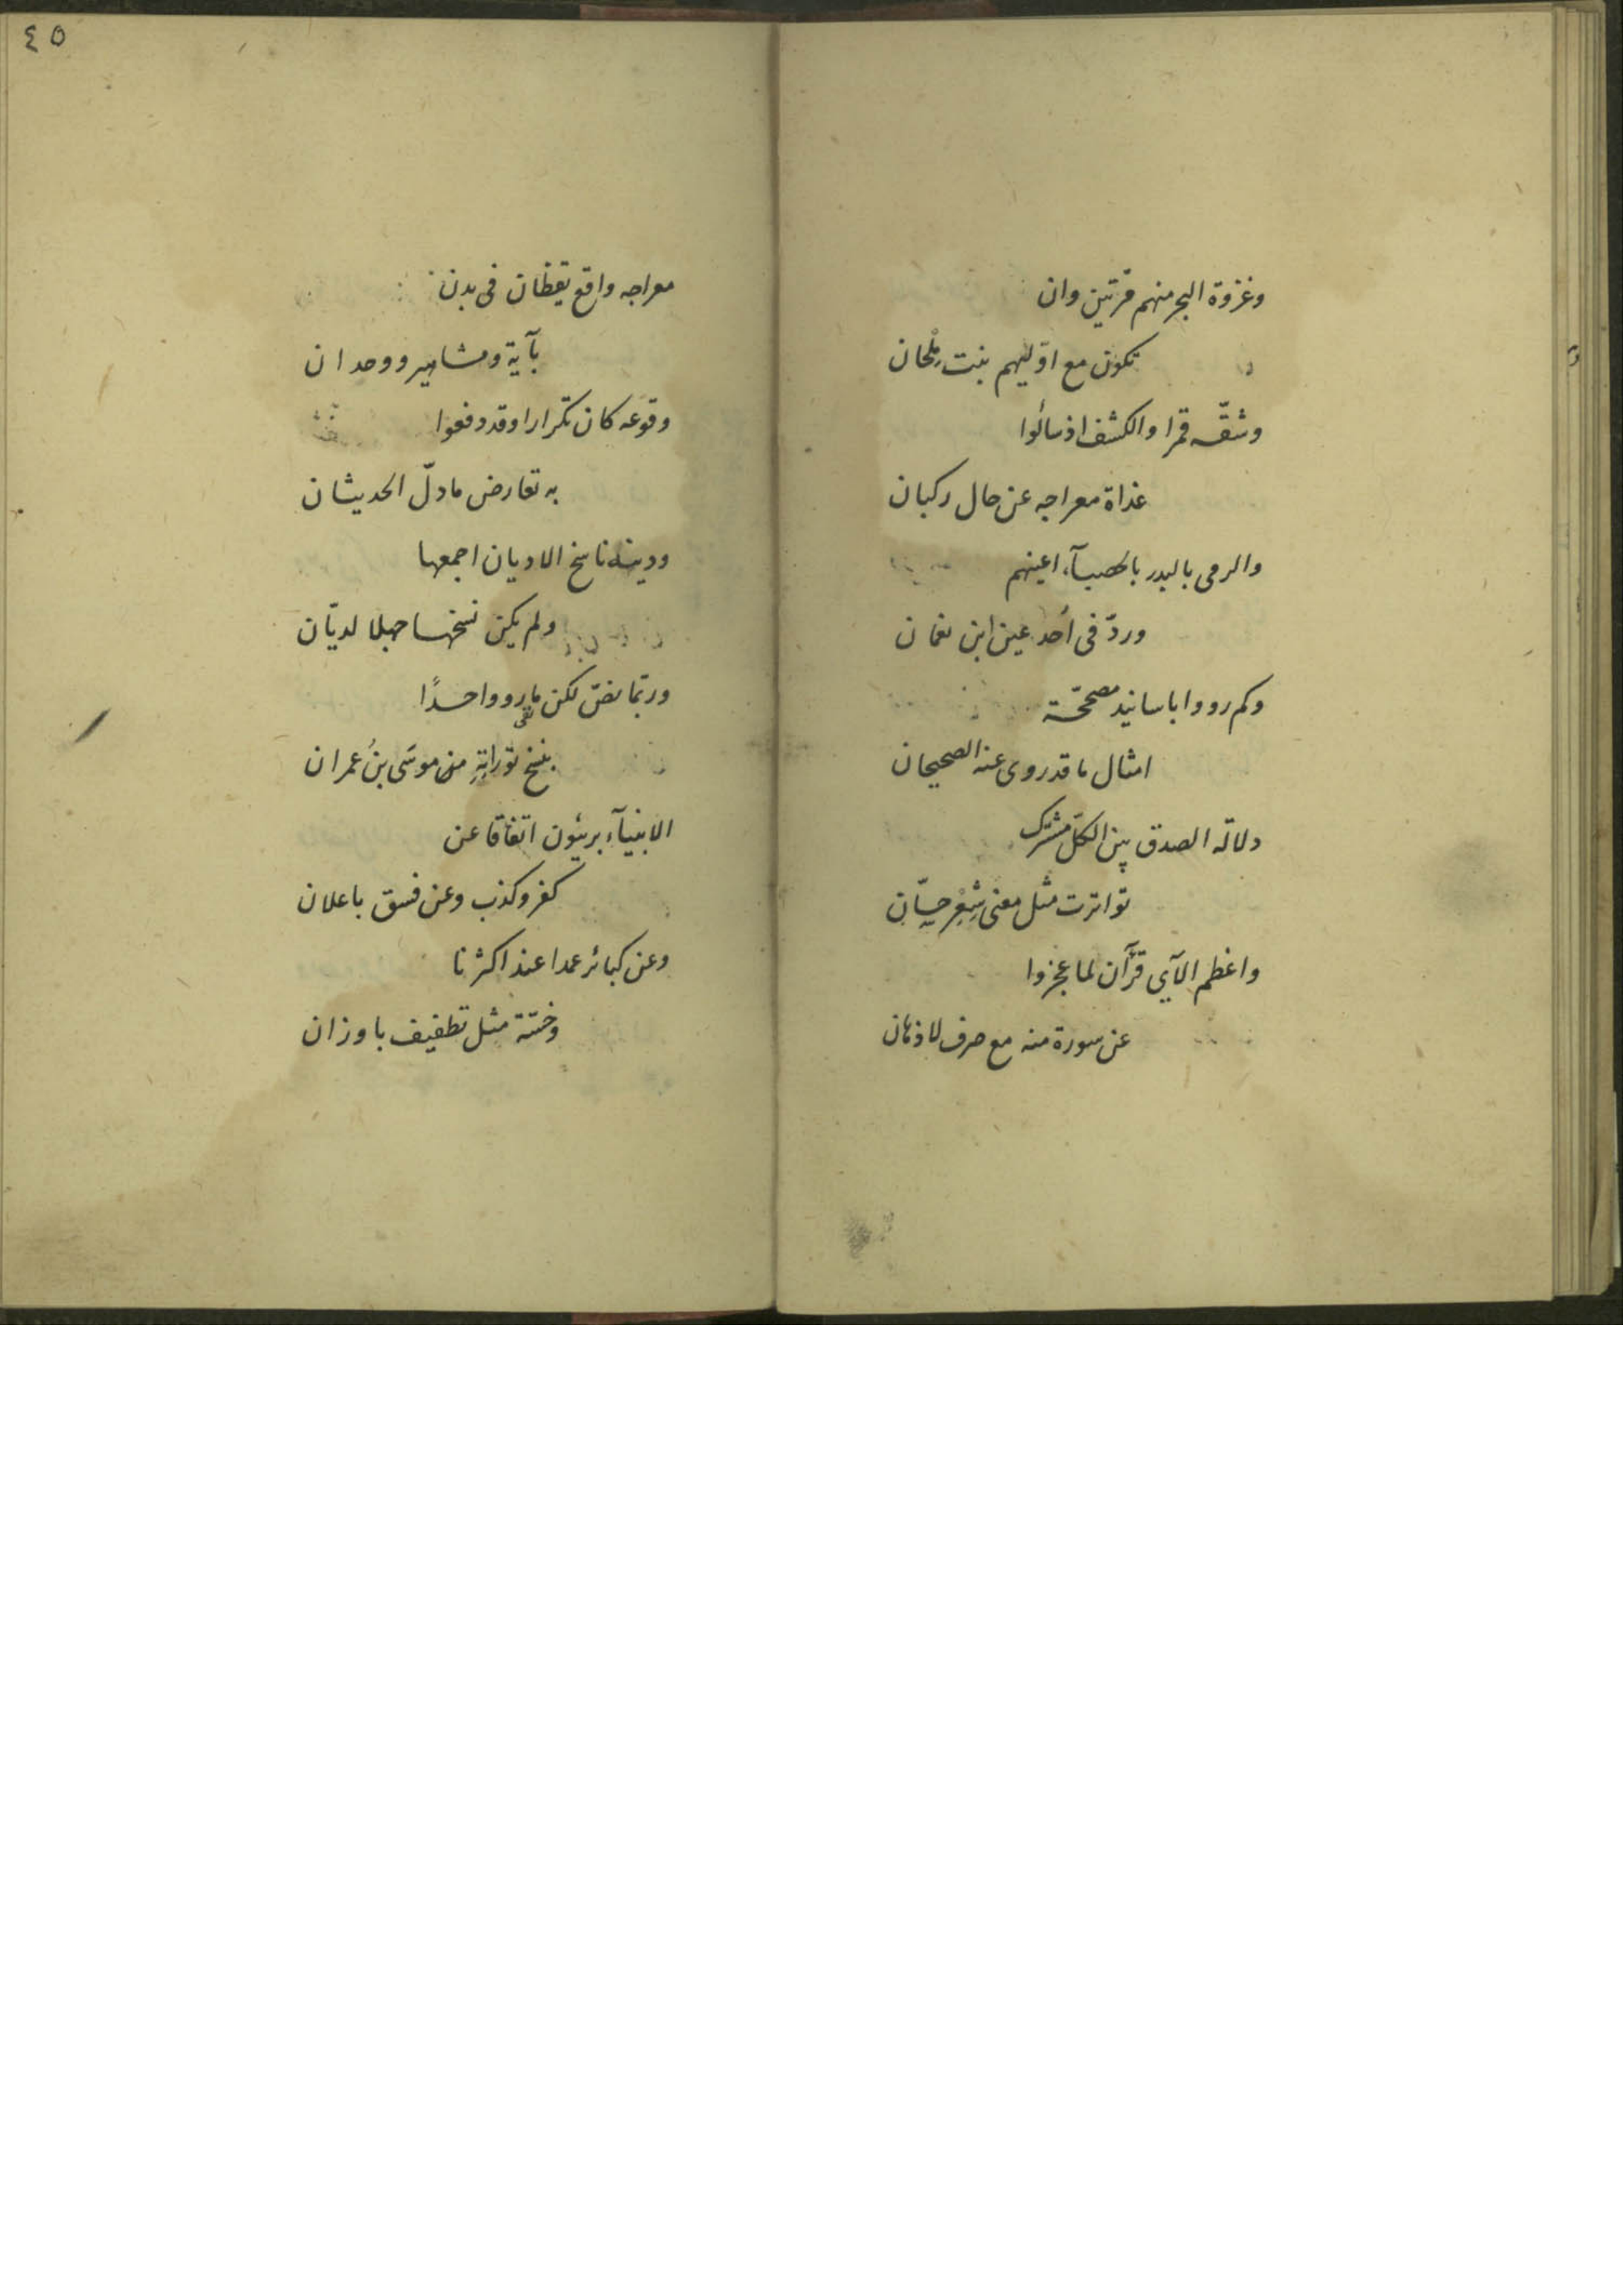 وغزوة البحر منهم مرّتين وان
تكون مع اوّليهم بنت مِلْحان
وشقّه قمرا والكشف اذ سألوا
غداة معراجه عن حال ركبان
والرمى بالبدر بالحصبآء اعينهم
وردّ فى اُحد عين ابن نعمان
وكم رووا باسانيد مصحّحة
امثال ما قد روى عنه الصحيحان
دلالة الصدق بين الكلّ مشترك
تواترت مثل معنى شِعْرِ حسّان
واعظم الآي قرآن لما عجزوا
عن سورة منه مع صرف لاذهان
٤٥
معراجه واقع يقظان فى بدن
بآية ومشاهير ووحدان
وقوعه كان تكرارا وقد دفعوا
به تعارض ما دلّ الحديثان
ودينه ناسخ الاديان اجمعها
ولم يكن نسخها جهلا لديّان
وربّما نصّ لكن ما رووا احدًا
نفى
بنسخ توراتِهِ من موسَى بنُ عمران
الانبيآء بريئون اتفاقا عن
كفر وكذب وعن فسق باعلان
وعن كبائر عمدا عند اكثرنا
وخسّة مثل تطفيف باوزان